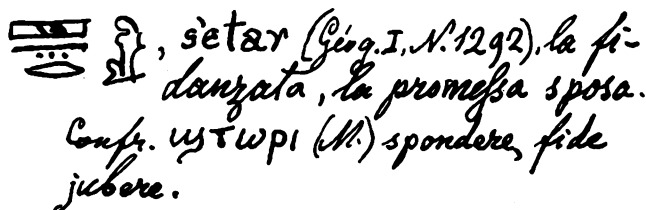 , setar (Géog. I, N. 1292), la fi-
danzata, la promessa sposa.
Confr. ϣⲧⲱⲣⲓ (M.) spondere, fide
jubere.